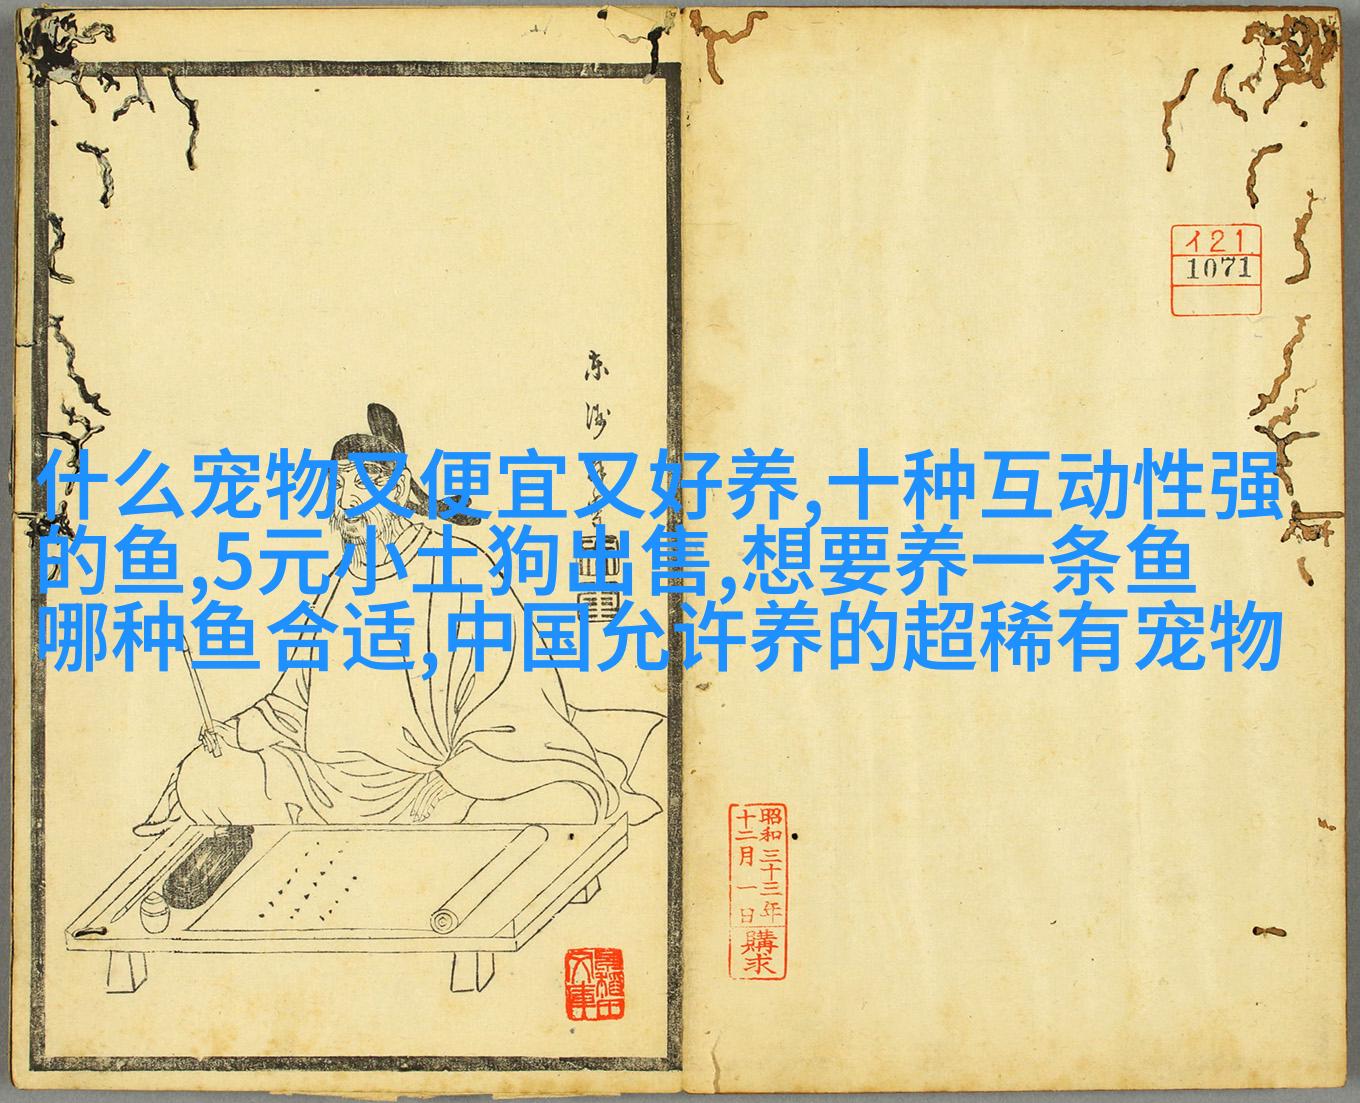 什么宠物又便宜又好养,十种互动性强
的鱼,5元小土狗出售,想要养一条鱼
哪种鱼合适,中国允许养的超稀有宠物
イ21
1071
昭和三十三年
十二月一日
購求